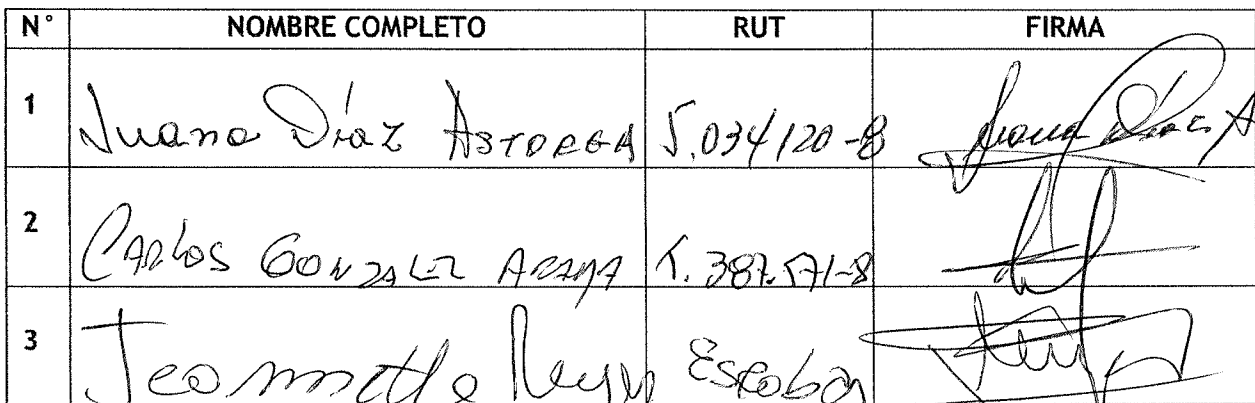 N° NOMBRE COMPLETO RUT FIRMA
1 Juana Díaz ASTORGA 5.034120-8 Juana Díaz A
2 CARLOS GONZALEZ ARAYA 5.387.571-8
3 Jeannette Reyes Escobar